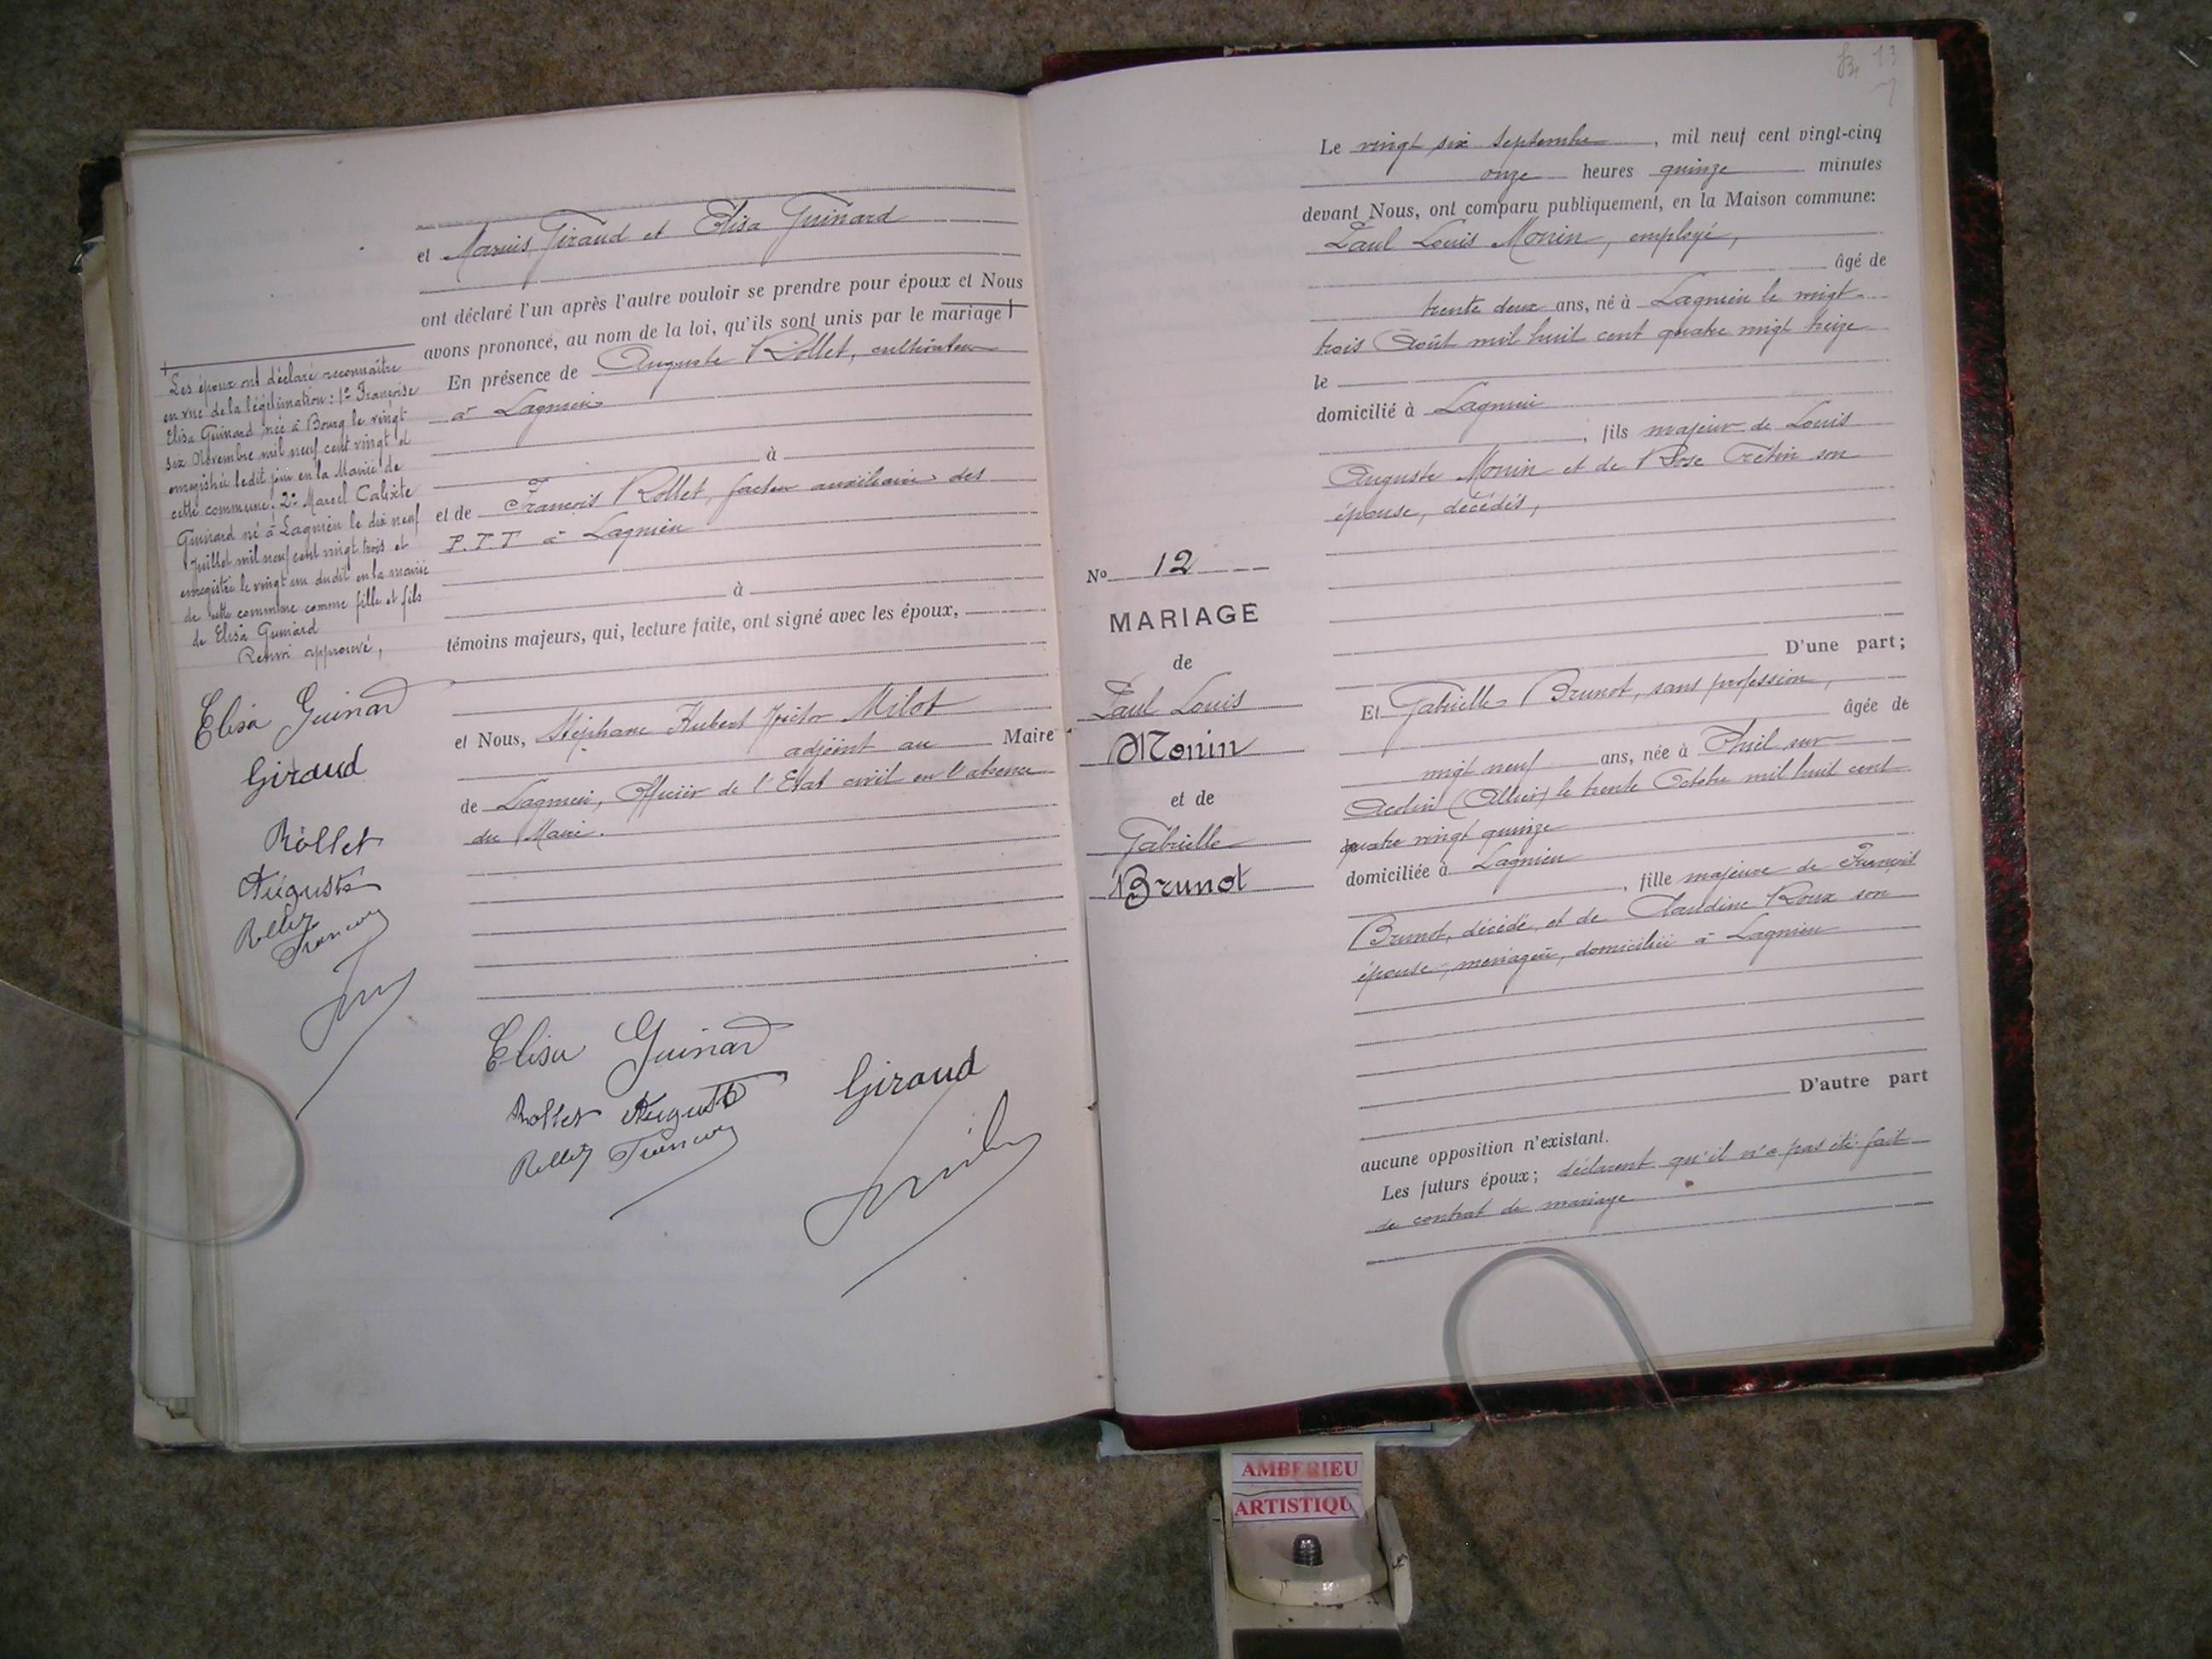 et Marius Giraud et Elisa Guinard
ont déclaré l'un après l'autre vouloir se prendre pour époux et Nous
avons prononcé, au nom de la loi, qu'ils sont unis par le mariage †
En présence de Auguste Rollet, cultivateur
à Lagnieu
à
et de François Rollet, facteur auxiliaire des
P.T.T à Lagnieu
à
témoins majeurs, qui, lecture faite, ont signé avec les époux,
et Nous, Stéphane Hubert Victor Milot
adjoint au Maire
de Lagnieu, Officier de l'Etat civil en l'absence
du Maire.
†
Les époux ont déclaré reconnaître
en vue de la légitimation: 1° Françoise
Elisa Guinard née à Bourg le vingt
six Novembre mil neuf cent vingt et
enregistrée ledit jour en la Mairie de
cette commune. 2° Marcel Calixte
Guinard né à Lagnieu le dix neuf
Juillet mil neuf cent vingt trois et
enregistré le vingt un dudit en la mairie
de cette commune comme fille et fils
de Elisa Guinard
Renvoi approuvé,
Elisa Guinard
Giraud
Rollet
Auguste
Rollet
François
Elisa Guinard
Rollet Auguste
Giraud
Rollet François
13
Le vingt six Septembre, mil neuf cent vingt-cinq
onze heures quinze minutes
devant Nous, ont comparu publiquement, en la Maison commune:
Paul Louis Monin, employé,
âgé de
trente deux ans, né à Lagnieu le vingt
trois Août mil huit cent quatre vingt treize
le
domicilié à Lagnieu
, fils majeur de Louis
Auguste Monin et de Rose Crétin son
épouse, décédés,
D'une part;
No 12
MARIAGE
de
Paul Louis
Monin
et de
Gabrielle
Brunot
Et Gabrielle Brunot, sans profession,
âgée de
vingt neuf ans, née à Thiel sur
Acolin (Allier) le trente Octobre mil huit cent
quatre vingt quinze
domiciliée à Lagnieu
, fille majeure de François
Brunot, décédé, et de Claudine Roux son
épouse, ménagère, domiciliée à Lagnieu
D'autre part
aucune opposition n'existant.
Les futurs époux; déclarent qu'il n'a pas été fait
de contrat de mariage
AMBERIEU
ARTISTIQU